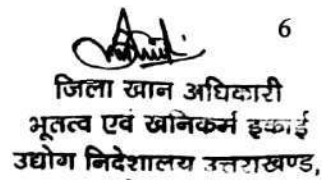 6
जिला खान अधिकारी
भूतत्व एवं खनिकर्म इकाई
उद्योग निदेशालय उत्तराखण्ड,